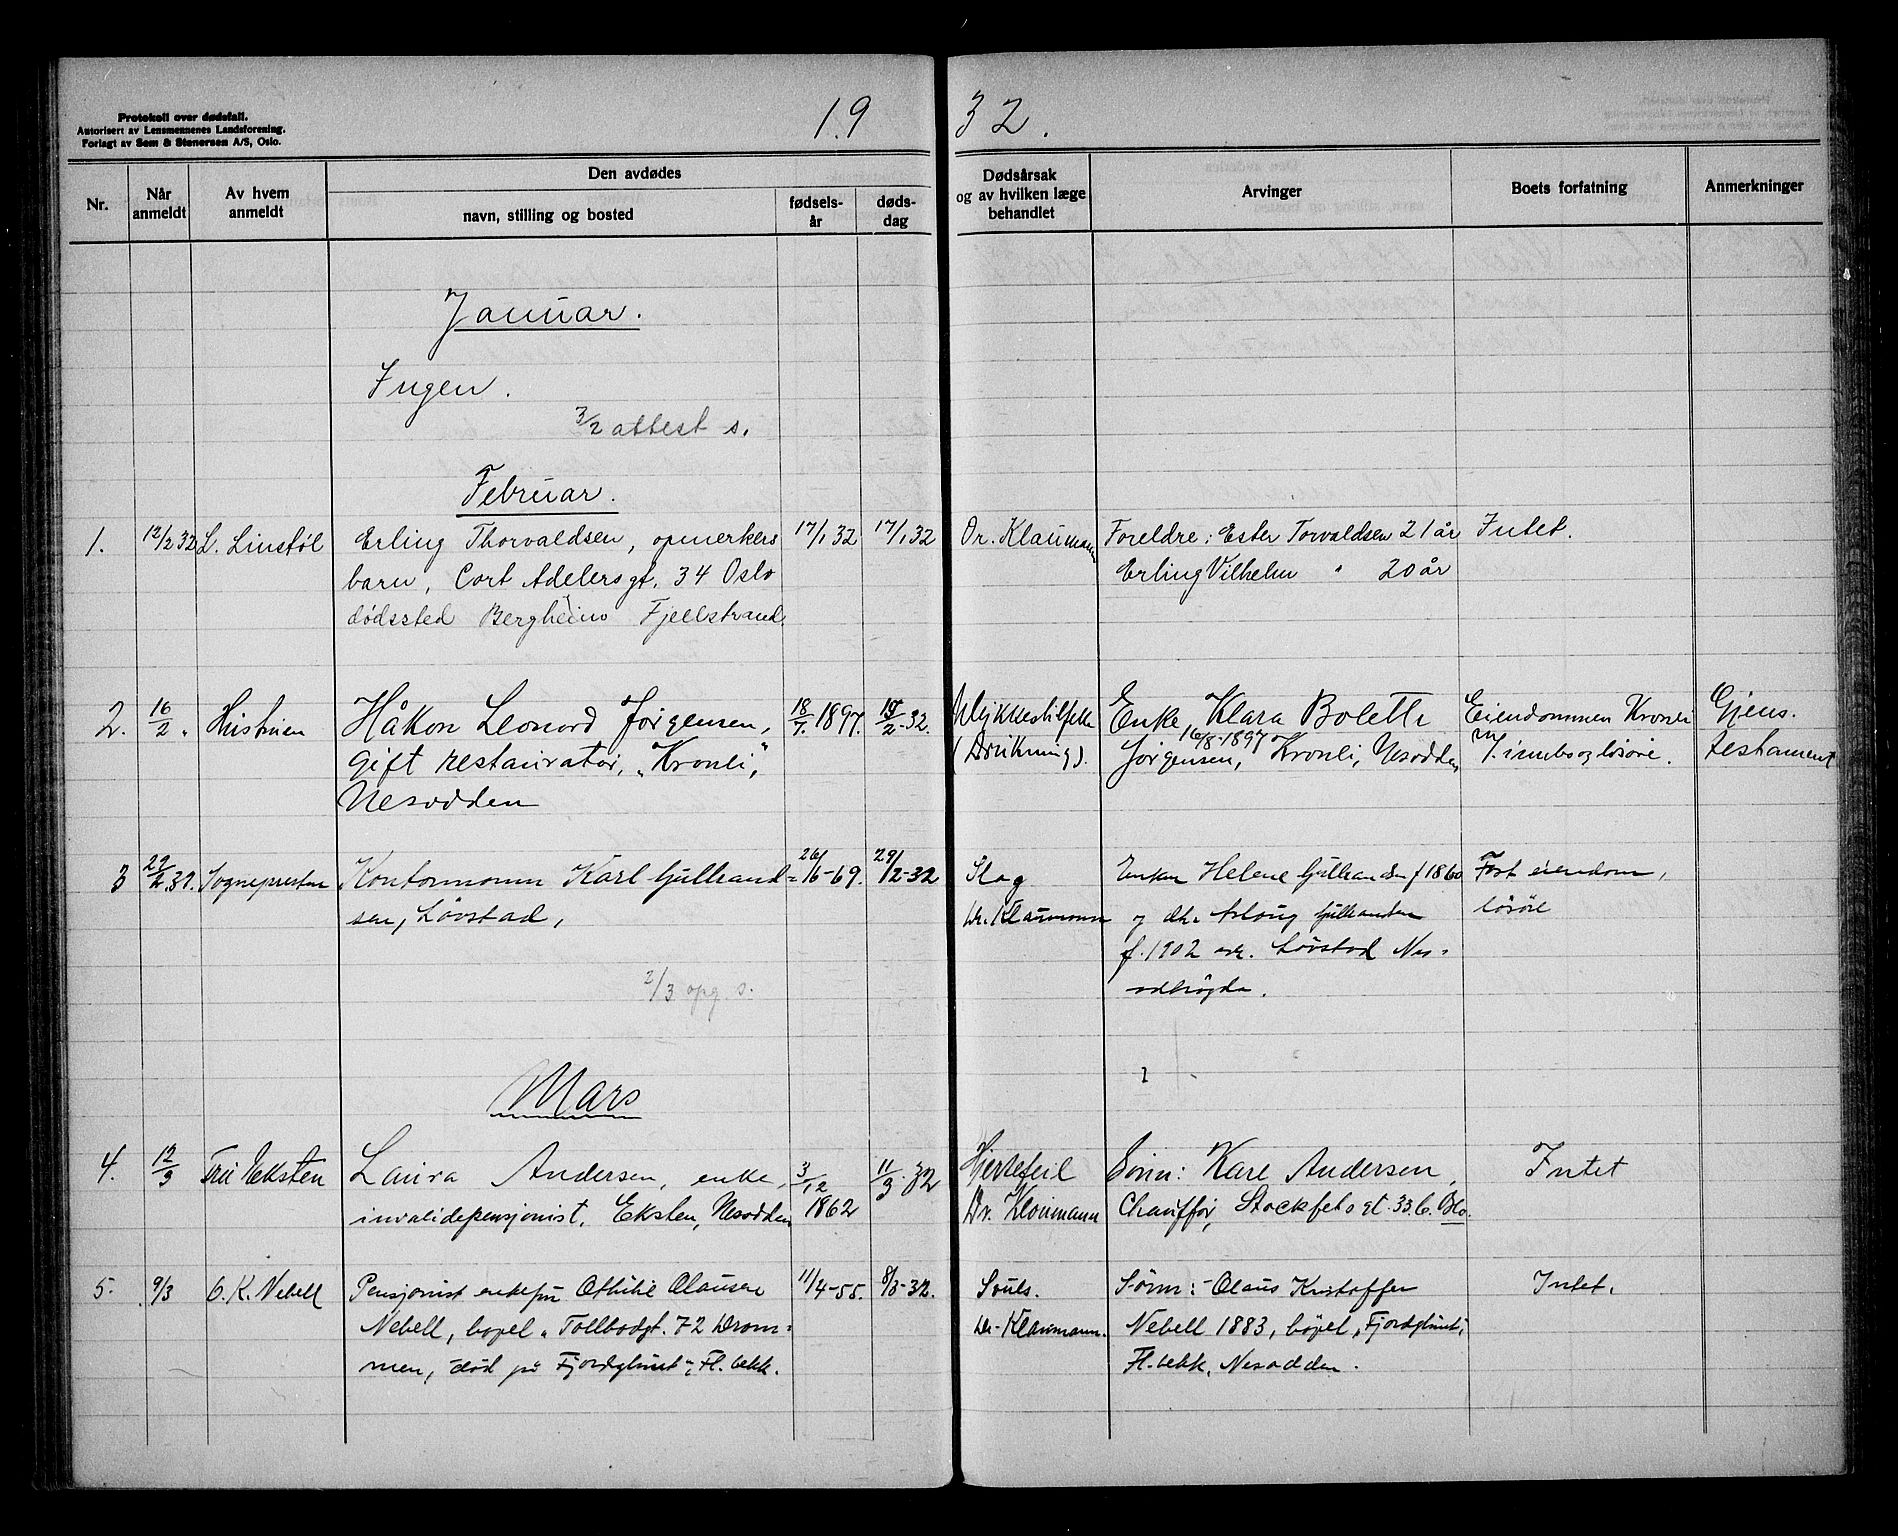 Protokoll over dødsfall.
Autorisert av Lensmennenes Landsforening.
Forlagt av Sem & Stenersen A/S, Oslo.
19 32.
Nr.
Når anmeldt
Av hvem anmeldt
Den avdødes
navn, stilling og bosted
fødsels-år
døds-dag
Dødsårsak og av hvilken læge behandlet
Arvinger
Boets forfatning
Anmerkninger
Januar.
Ingen.
3/2 attest s.
Februar.
1. 12/2 32 L. Linstøl Erling Thorvaldsen, opmerkers 17/1 32 17/1 32 Dr. Klaumann Foreldre: Ester Torvaldsen 21 år Intet.
barn, Cort Adelersgt. 34 Oslo Erling Vilhelm " 20 år
dødssted Bergheim Fjellstrand.
2. 16/2 " Hustruen Håkon Leonord Jørgensen, 18/7. 1897. 15/2-32. Ulykkestilfelle Enke, Klara Bolette Eiendommen Kronli Gjens.
gift restauratør, "Kronli", (Drukning). 16/8-1897 Jørgensen, Kronli, Nesodden m/ innbo og løsøre. testament
Nesodden
3 29/2 32. Sognepresten Kontormann Karl Gulbrand= 26/6-69. 29/2-32 Slag Enken Helene Gulbrandsen f 1860 Fast eiendom,
sen, Løvstad, Dr. Klaumann og dtr. Aslaug Gulbrandsen løsøre
f. 1902 adr. Løvstad Nes=
odbygda.
2/3 opg s.
Mars
4. 12/3 Fru Eksten Laura Andersen, enke, 3/12 11/3-32 Hjertefeil Sønn: Kare Andersen, Intet
invalidepensjonist. Eksten, Nesodden 1862 Dr. Klaumann Chauffør, Stockfets gt. 33.b. Oslo.
5. 9/3 O. K. Nebell Pensjonist enkefru Othilie Clausen 11/4-55. 8/3-32. Dr. Klaumann. Sønn:- Claus Kristoffer Intet.
Nebell, bopel, Tollbodgt. 72 Dram= Nebell 1883, bopel, "Fjordglimt",
men, død på "Fjordglimt", Fl.bekk. Fl.bekk, Nesodden.